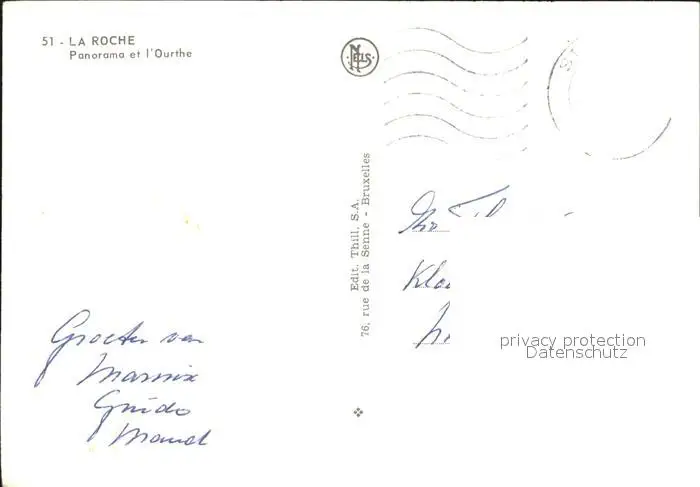 51 - LA ROCHE
Panorama et l'Ourthe
NELS
Edit. Thill, S.A.
76, rue de la Senne - Bruxelles
Groeten van
Marnix
Guido
Maud
Klo
privacy protection
Datenschutz